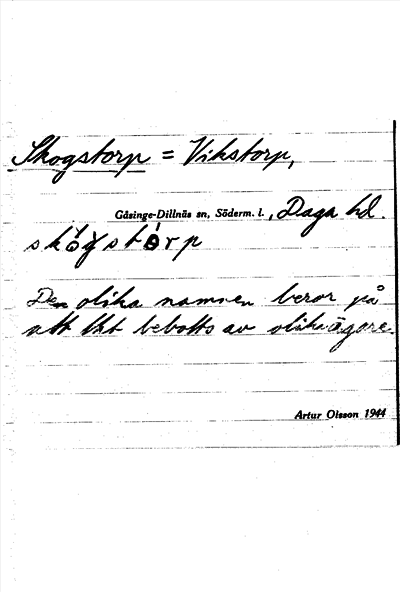 Skogstorp = Vikstorp,
Gåsinge-Dillnäs sn, Söderm. l., Daga hd.
skó̀gstò́rp
Den olika namnen beror på
att tkt bebotts av olika ägare.
Artur Olsson 1944